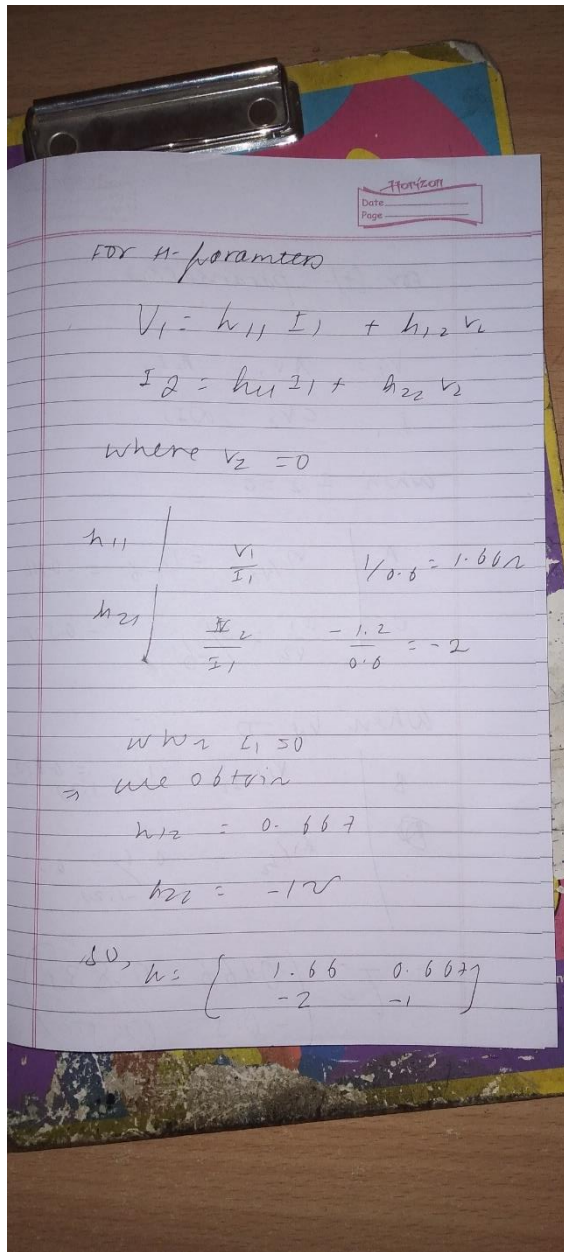 Horizon
Date
Page
For H-paramters
V1 = h11 I1 + h12 V2
I2 = h21 I1 + h22 V2
where V2 = 0
h11 | V1/I1 1/0.6 = 1.66Ω
h21 | I2/I1 -1.2/0.6 = -2
whn I1 = 0
⇒ we obtain
h12 = 0.667
h22 = -1℧
so, h = [ 1.66 0.667
-2 -1 ]